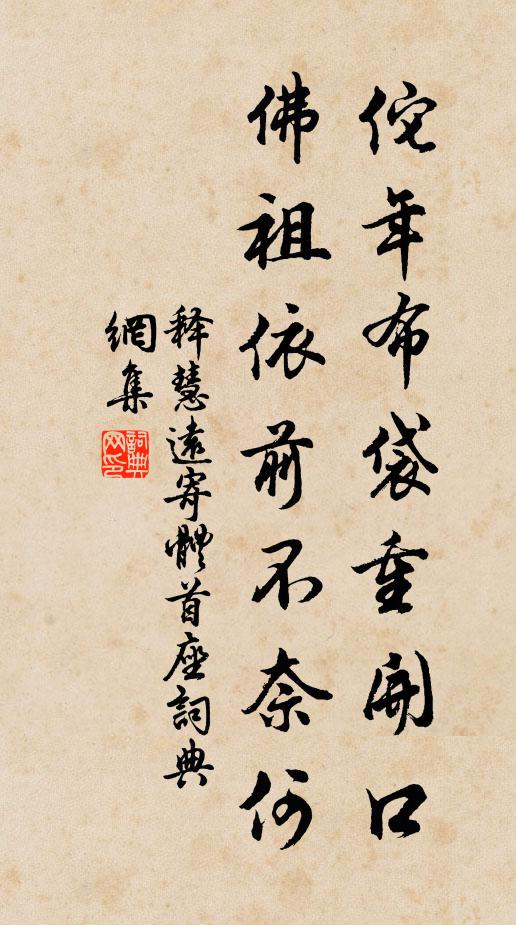 佗年布袋重開口
佛祖依前不奈何
釋慧遠寄體首座詞典
網集
詞典
网印